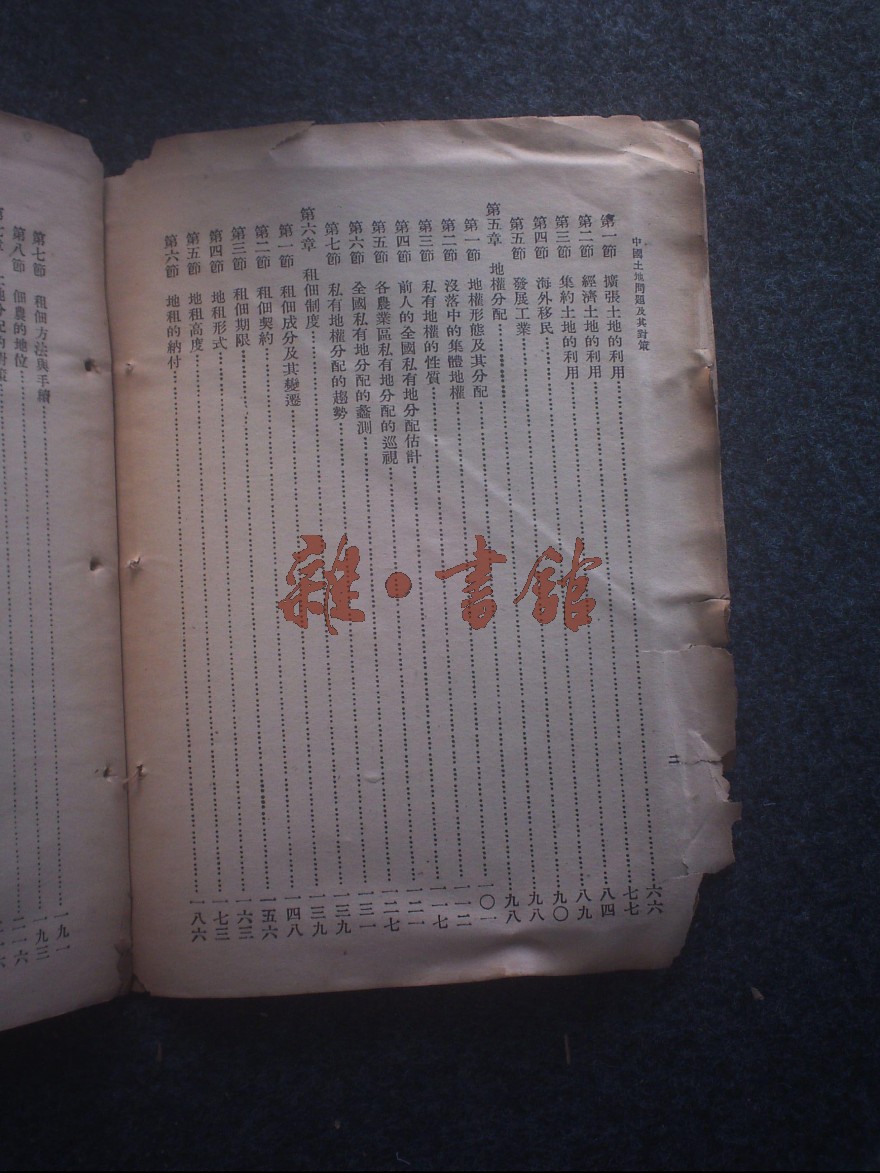 中國土地問題及其對策
二
第一節 擴張土地的利用……六六
第二節 經濟土地的利用……七七
第三節 集約土地的利用……八四
第四節 海外移民……八九
第五節 發展工業……九〇
第五章 地權分配……九八
第一節 地權形態及其分配……九八
第二節 沒落中的集體地權……一〇一
第三節 私有地權的性質……一一二
第四節 前人的全國私有地分配估計……一一七
第五節 各農業區私有地分配的巡視……一二一
第六節 全國私有地分配的蠡測……一二七
第七節 私有地權分配的趨勢……一三一
第六章 租佃制度……一三九
第一節 租佃成分及其變遷……一三九
第二節 租佃契約……一四八
第三節 租佃期限……一五六
第四節 地租形式……一六三
第五節 地租高度……一七三
第六節 地租的納付……一八六
第七節 租佃方法與手續……一九一
第八節 佃農的地位……一九三
土地分配的對策……二一六
雜·書館